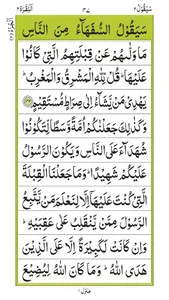 سَيَقُوْلُ ٢
٣٧
اَلْبَقَرَة ٢
سَيَقُوْلُ السُّفَهَآءُ مِنَ النَّاسِ
مَا وَلّٰىهُمْ عَنْ قِبْلَتِهِمُ الَّتِيْ كَانُوْا
عَلَيْهَا ؕ قُلْ لِّلّٰهِ الْمَشْرِقُ وَالْمَغْرِبُ ؕ
يَهْدِيْ مَنْ يَّشَآءُ اِلٰى صِرَاطٍ مُّسْتَقِيْمٍ
وَكَذٰلِكَ جَعَلْنٰكُمْ اُمَّةً وَّسَطًا لِّتَكُوْنُوْا
شُهَدَآءَ عَلَى النَّاسِ وَيَكُوْنَ الرَّسُوْلُ
عَلَيْكُمْ شَهِيْدًا ؕ وَمَا جَعَلْنَا الْقِبْلَةَ
الَّتِيْ كُنْتَ عَلَيْهَآ اِلَّا لِنَعْلَمَ مَنْ يَّتَّبِعُ
الرَّسُوْلَ مِمَّنْ يَّنْقَلِبُ عَلٰى عَقِبَيْهِ ؕ
وَاِنْ كَانَتْ لَكَبِيْرَةً اِلَّا عَلَى الَّذِيْنَ
هَدَى اللّٰهُ ؕ وَمَا كَانَ اللّٰهُ لِيُضِيْعَ
منزل ١